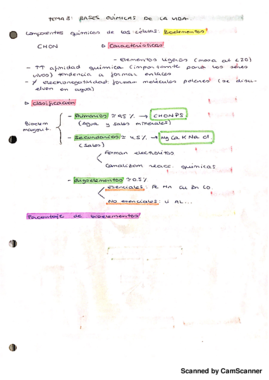 TEMA 3: BASES QUÍMICAS DE LA VIDA
Componentes químicos de las células: Bioelementos!
CHON
Características!
- Elementos ligeros (nora pa <20)
- ↑↑ afinidad química (importante para los seres vivos) tendencia a formar enlaces
- ≠ electronegatividad: forman moléculas polares (se disuelven en agua)
Clasificación
Bioelem
mayorit.
- Primarios > 95% → CHONPS
(agua y sales minerales)
- Secundarios ≈ 4,5% → Mg Ca K Na Cl
(Sales)
forman electrolitos
Canalizan reacc. químicas
- Oligoelementos > 0,5%
esenciales: Fe Mn Cu Zn Co
no esenciales: U AL...
Porcentaje de bioelementos!
Scanned by CamScanner